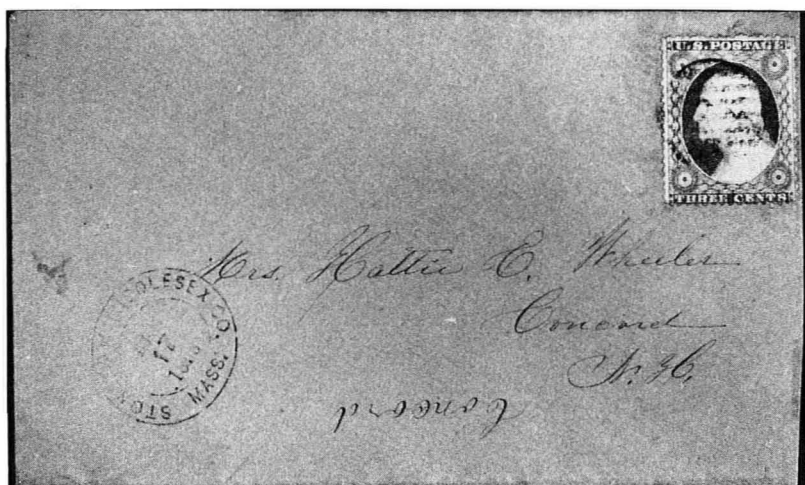 U.S.POSTAGE
THREE CENTS
Mrs. Hattie E. Wheeler
Concord
N. H.
MIDDLESEX CO
MASS.
17
Concord